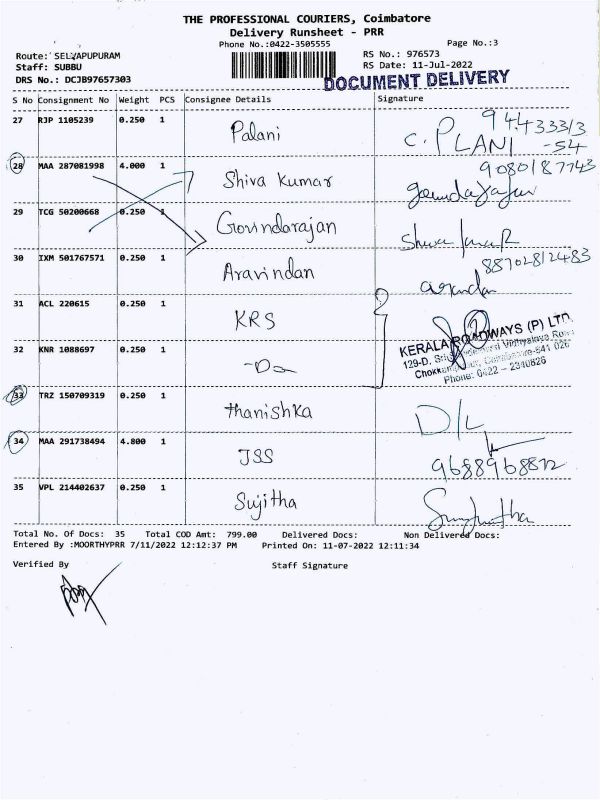 THE PROFESSIONAL COURIERS, Coimbatore
Delivery Runsheet - PRR
Phone No.:0422-3505555
Page No.:3
Route: SELVAPUPURAM
RS No.: 976573
Staff: SUBBU
RS Date: 11-Jul-2022
DRS No.: DCJB97657303
DOCUMENT DELIVERY
S No Consignment No Weight PCS Consignee Details Signature
27 RJP 1105239 0.250 1 Palani C. PLANI
28 MAA 287081998 4.000 1 Shiva Kumar 9080187743
29 TCG 50200668 0.250 1 Govindarajan
30 IXM 501767571 0.250 1 Aravindan 88702812483
31 ACL 220615 0.250 1 KRS
KERALA ROADWAYS (P) LTD.
32 KNR 1088697 0.250 1 -Do
Phone: 0422 - 2340826
33 TRZ 150709319 0.250 1 thanishka D/L
34 MAA 291738494 4.800 1 JSS 9688968872
35 VPL 214402637 0.250 1 Sujitha
Total No. Of Docs: 35 Total COD Amt: 799.00 Delivered Docs: Non Delivered Docs:
Entered By :MOORTHYPRR 7/11/2022 12:12:37 PM Printed On: 11-07-2022 12:11:34
Verified By Staff Signature